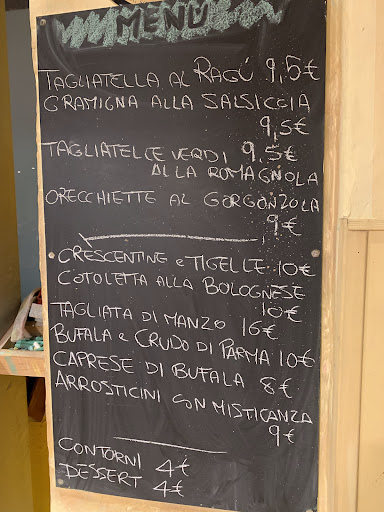 MENU
TAGLIATELLA AL RAGÚ 9,5€
GRAMIGNA ALLA SALSICCIA
9,5€
TAGLIATELLE VERDI 9,5€
ALLA ROMAGNOLA
ORECCHIETTE AL GORGONZOLA
9€
CRESCENTINE e TIGELLE 10€
COTOLETTA ALLA BOLOGNESE
10€
TAGLIATA DI MANZO 16€
BUFALA e CRUDO DI PARMA 10€
CAPRESE DI BUFALA 8€
ARROSTICINI CON MISTICANZA
9€
CONTORNI 4€
DESSERT 4€